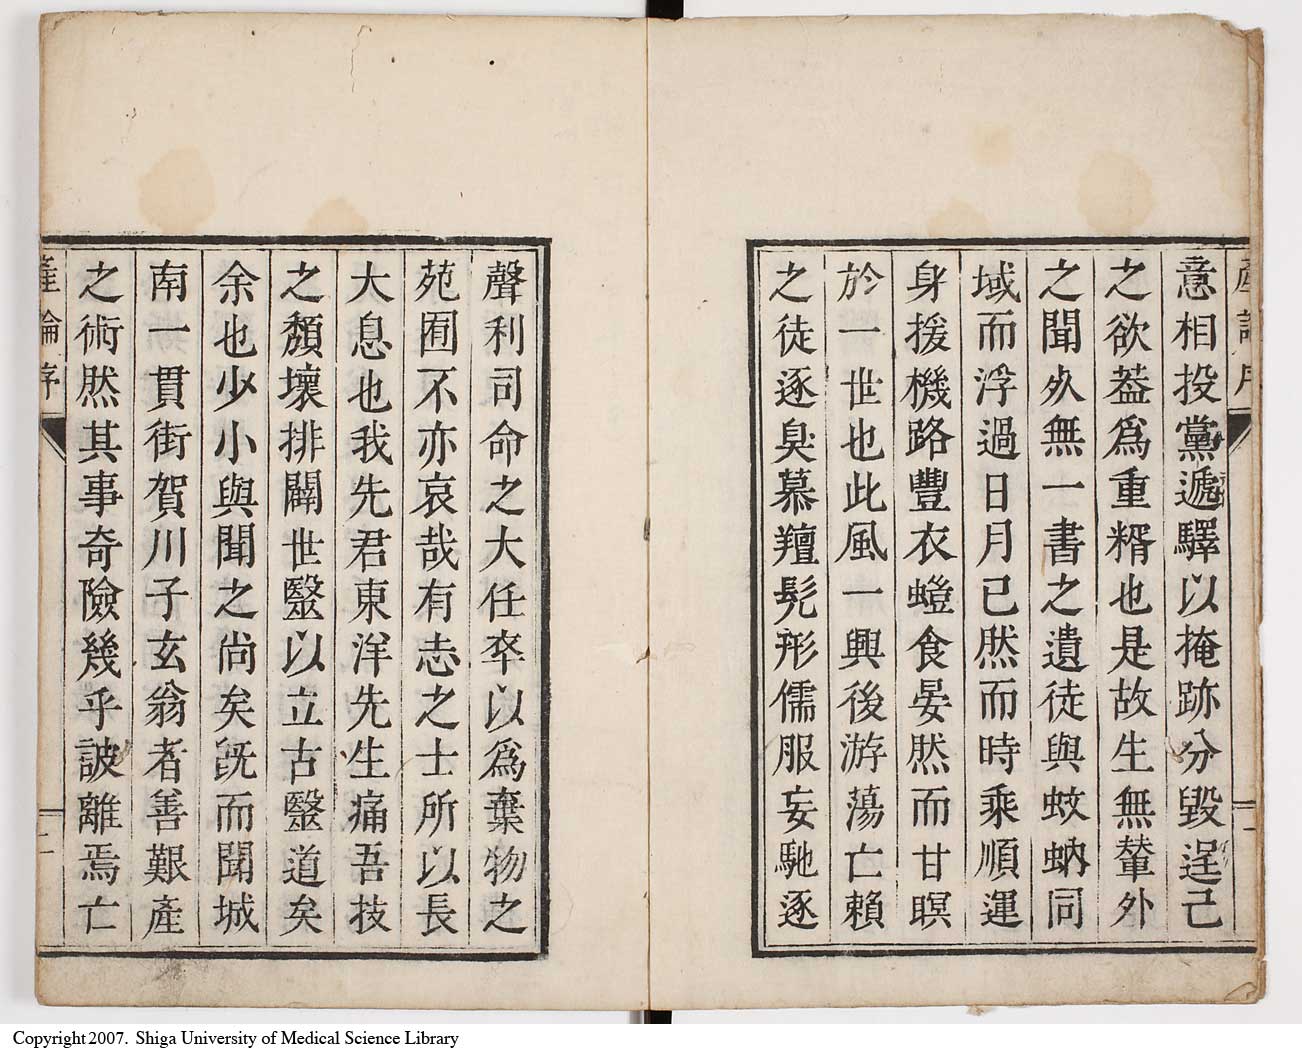 意相投黨遞驛以掩跡分毀逞己
之欲葢爲重糈也是故生無輦外
之聞𣦸無一書之遺徒與蚊蚋同
域而浮過日月已然而時乘順運
身援機路豐衣螘食晏然而甘瞑
於一世也此風一興後游蕩亡賴
之徒逐臭慕羶髡形儒服妄馳逐
聲利司命之大任卒以爲棄物之
苑囿不亦哀哉有志之士所以長
大息也我先君東洋先生痛吾技
之頽壞排闢世毉以立古毉道矣
余也少小與聞之尚矣既而聞城
南一貫街賀川子玄翁者善艱產
之術然其事奇險幾乎詖離焉亡
產論序
二
Copyright 2007. Shiga University of Medical Science Library